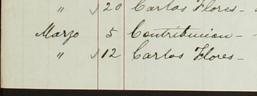 " 20 Carlos Flores -
Marzo 5 Contribucion -
" 12 Carlos Flores -